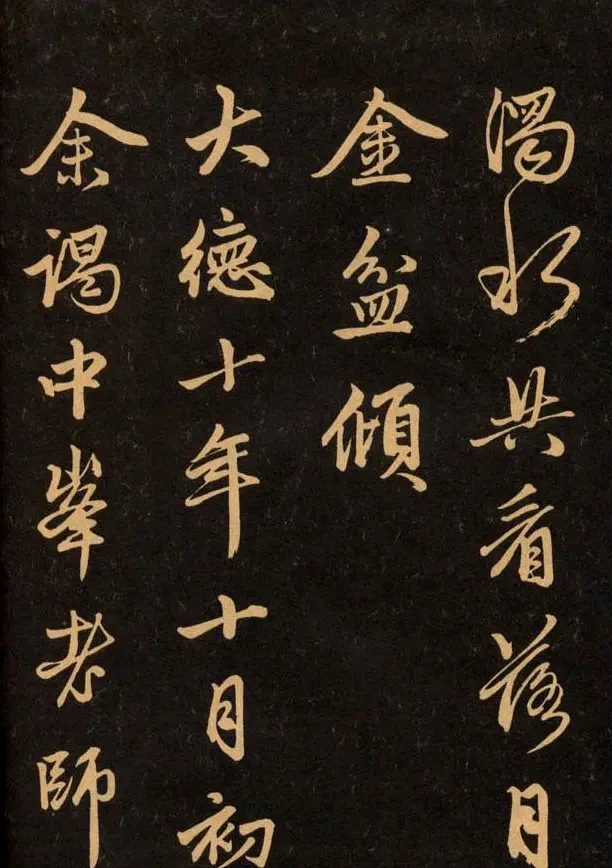 濁水共看落月
金盆傾
大德十年十月初
余謁中峯老師